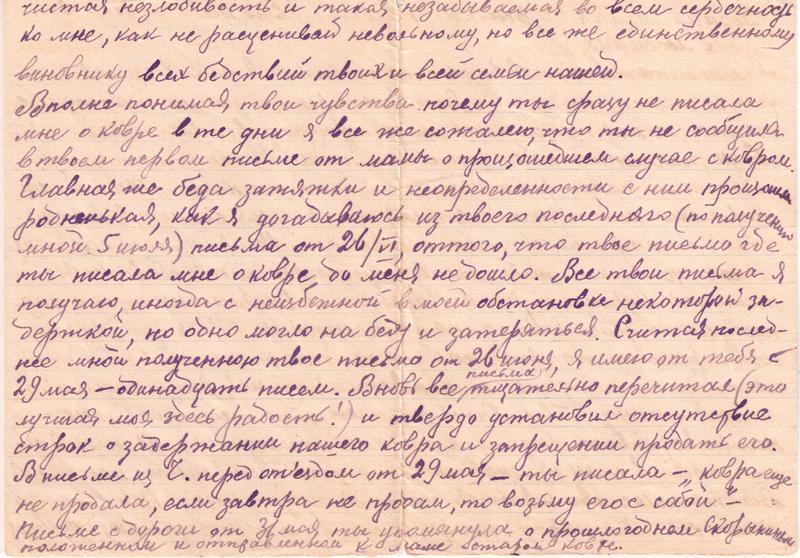 чистая незлобивость и такая незабываемая во всем сердечность
ко мне, как не расценивай невольному, но все же единственному
виновнику всех бедствий твоих и всей семьи нашей.
Вполне понимая твои чувства почему ты сразу не писала
мне о ковре в те дни я все же сожалею, что ты не сообщила
в твоем первом письме от мамы о происшедшем случае с ковром.
Главная же беда затяжки и неопределенности с ним произошла
родненькая, как я догадываюсь из твоего последнего (по получению
мной 5 июля) письма от 26/VI, оттого, что твое письмо где
ты писала мне о ковре до меня не дошло. Все твои письма я
получаю, иногда с неизбежной в моей обстановке некоторой за-
держкой, но одно могло на беду и затеряться. Считая послед-
нее мной полученною твое письмо от 26 июня, я имею от тебя с
29 мая – одинадцать писем. Вновь все письма тщательно перечитал (это
лучшая моя здесь радость!) и твердо установил отсутствие
строк о задержании нашего ковра и запрещении продать его.
В письме из Ч. перед от'ездом от 29 мая – ты писала – „ковра еще
не продала, если завтра не продам, то возьму его с собой" – :
Письме с дороги от 31 мая ты упомянула о прошлогоднем
положенном и отправленном к маме старом ковре.